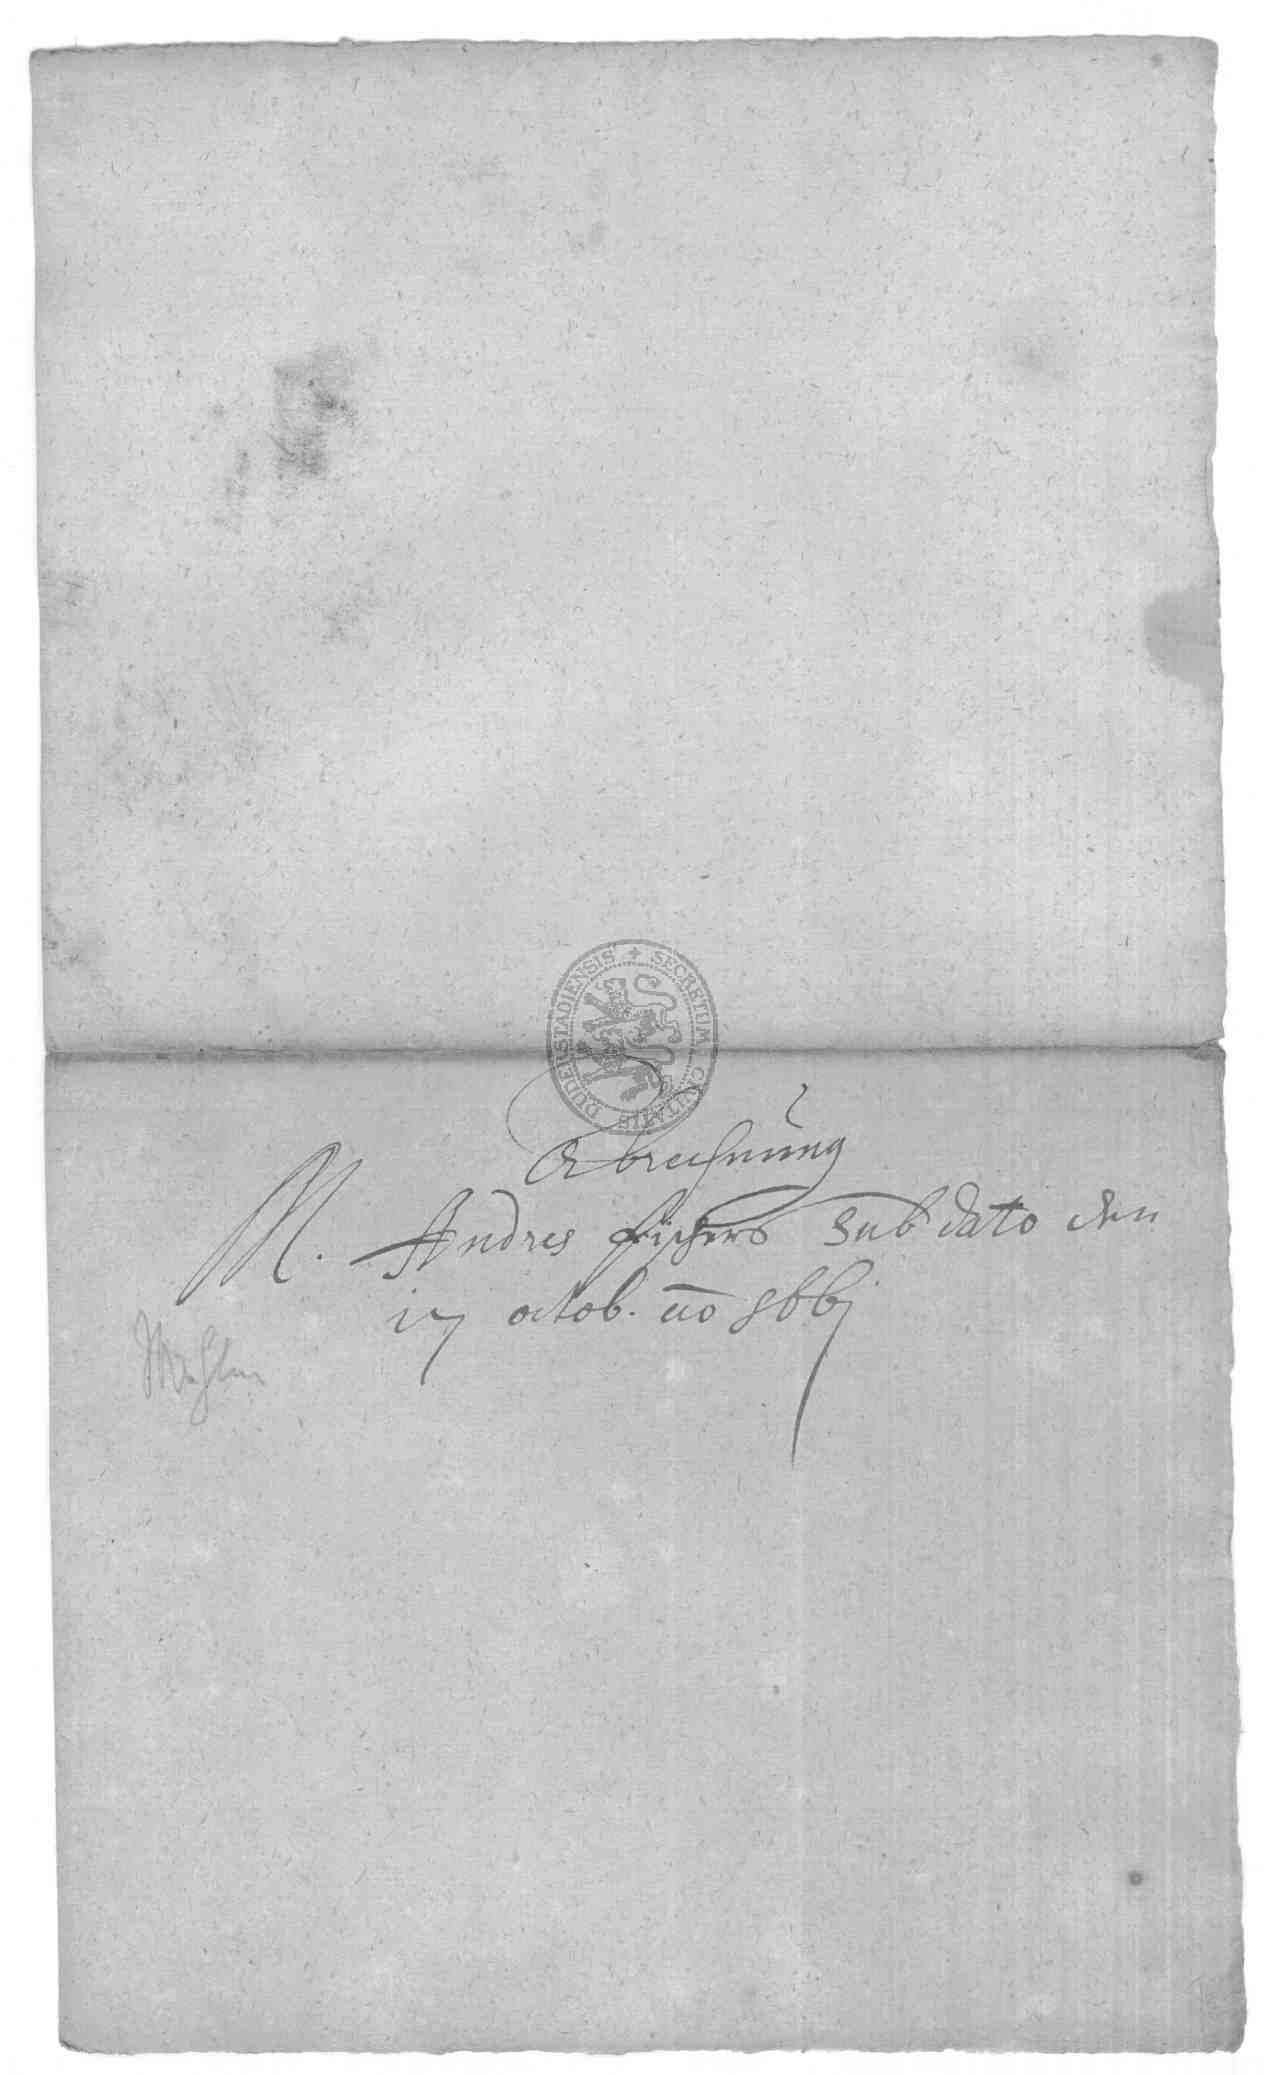 SECRETUM CIVITATIS DUDERSTADIENSIS
Abrechnung
M. Andres Fischers sub dato den
17 octob. ao